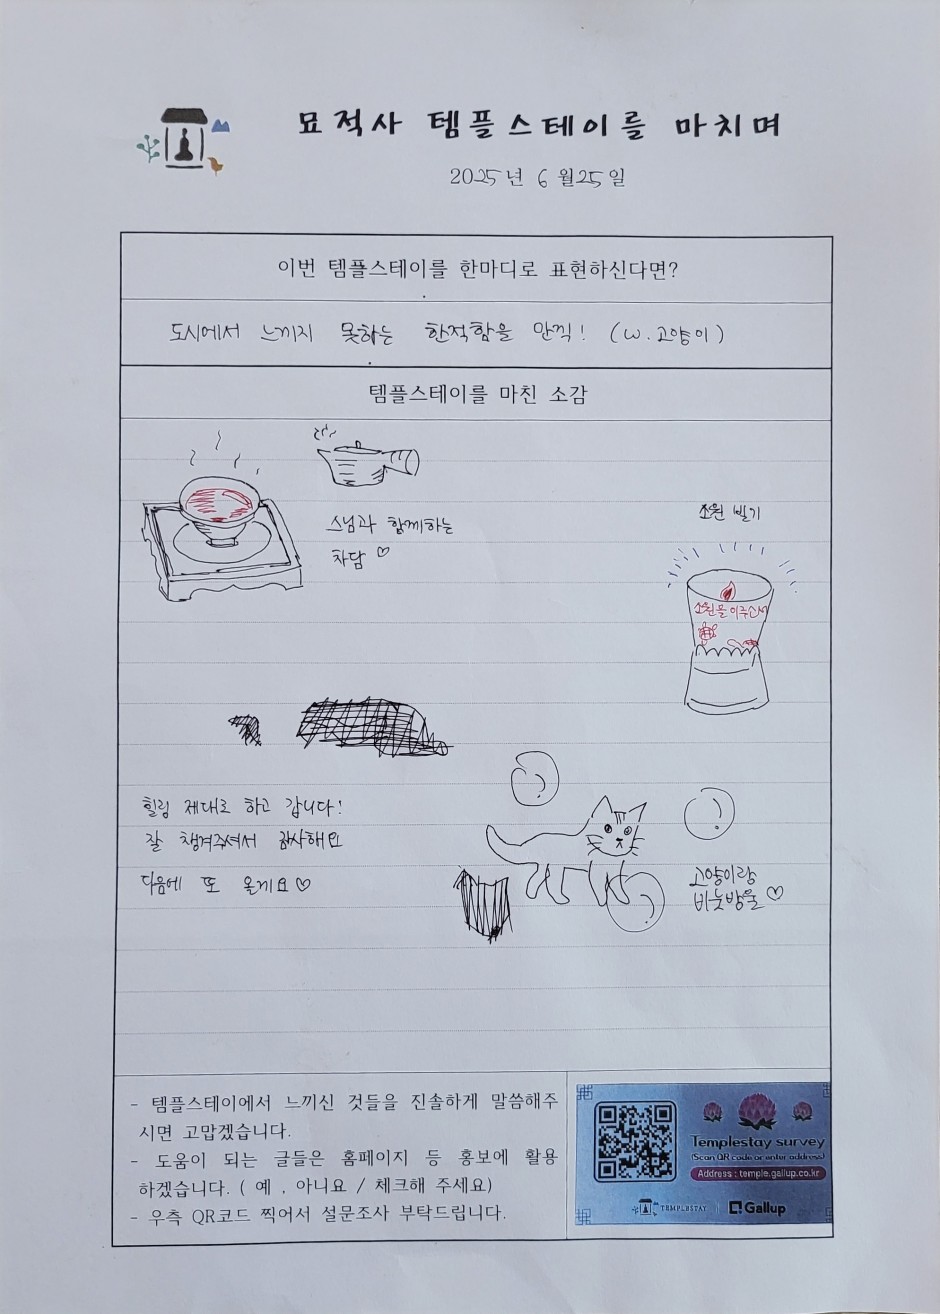 묘적사 템플스테이를 마치며
2025년 6월25일
이번 템플스테이를 한마디로 표현하신다면?
도시에서 느끼지 못하는 한적함을 만끽! (W.고양이)
템플스테이를 마친 소감
스님과 함께하는
차담 ♡
소원 빌기
소원을 이루소서
힐링 제대로 하고 갑니다!
잘 챙겨주셔서 감사해요
다음에 또 올게요♡
고양이랑
비눗방울 ♡
- 템플스테이에서 느끼신 것들을 진솔하게 말씀해주
시면 고맙겠습니다.
- 도움이 되는 글들은 홈페이지 등 홍보에 활용
하겠습니다. ( 예 , 아니요 / 체크해 주세요)
- 우측 QR코드 찍어서 설문조사 부탁드립니다.
Templestay survey
(Scan QR code or enter address)
Address : temple.gallup.co.kr
TEMPLESTAY
Gallup